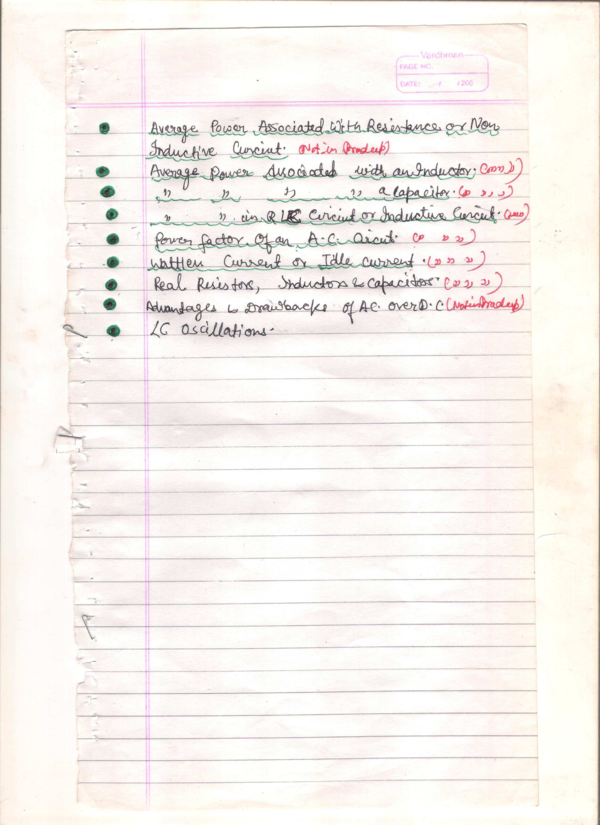 Vardhman
PAGE NO.
DATE: / / 200
Average Power Associated With Resistance or Non
Inductive Circuit. (Not in Pradeep)
Average Power Associated with an Inductor. (" " ")
" " " " a Capacitor. (" " ")
" " in R LC Circuit or Inductive Circuit. (" " ")
Power factor Of an A.C. Circuit. (" " ")
Wattless Current or Idle current. (" " ")
Real Resistors, Inductors & Capacitors. (" " ")
Advantages & Drawbacks of AC over D.C. (Not in Pradeep)
LC Oscillations.